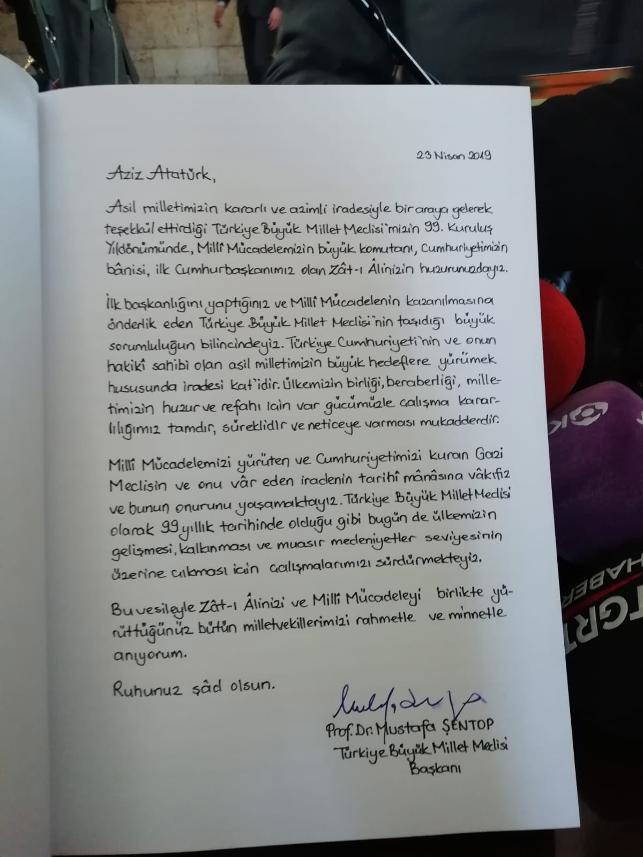 23 Nisan 2019
Aziz Atatürk,
Asil milletimizin kararlı ve azimli iradesiyle bir araya gelerek
teşekkül ettirdiği Türkiye Büyük Millet Meclisi'mizin 99. Kuruluş
Yıldönümünde, Millî Mücadelemizin büyük komutanı, Cumhuriyetimizin
bânisi, ilk Cumhurbaşkanımız olan Zât-ı Âlinizin huzurunuzdayız.
İlk başkanlığını yaptığınız ve Millî Mücadelenin kazanılmasına
önderlik eden Türkiye Büyük Millet Meclisi'nin taşıdığı büyük
sorumluluğun bilincindeyiz. Türkiye Cumhuriyeti'nin ve onun
hakikî sahibi olan asil milletimizin büyük hedeflere yürümek
hususunda iradesi kat'idir. Ülkemizin birliği, beraberliği, mille-
timizin huzur ve refahı için var gücümüzle çalışma karar-
lılığımız tamdır, süreklidir ve neticeye varması mukadderdir.
Millî Mücadelemizi yürüten ve Cumhuriyetimizi kuran Gazi
Meclisin ve onu vâr eden iradenin tarihî mânâsına vâkıfız
ve bunun onurunu yaşamaktayız. Türkiye Büyük Millet Meclisi
olarak 99 yıllık tarihinde olduğu gibi bugün de ülkemizin
gelişmesi, kalkınması ve muasır medeniyetler seviyesinin
üzerine çıkması için çalışmalarımızı sürdürmekteyiz.
Bu vesileyle Zât-ı Âlinizi ve Millî Mücadeleyi birlikte yü-
rüttüğünüz bütün milletvekillerimizi rahmetle ve minnetle
anıyorum.
Ruhunuz şâd olsun.
Prof. Dr. Mustafa ŞENTOP
Türkiye Büyük Millet Meclisi
Başkanı
TGRT
HABER